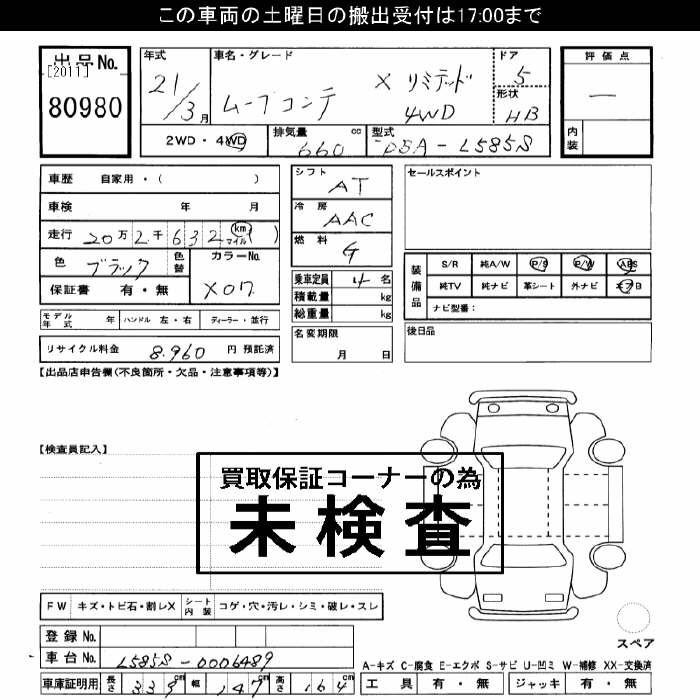 この車両の土曜日の搬出受付は17:00まで
出品No.
[2011]
80980
年式
21/3月
車名・グレード
ムーブコンテ X リミテッド 4WD
ドア
5
形状
HB
評価点
―
内装
2WD・4WD
排気量 cc
660
型式
DBA-L585S
車歴 自家用・( )
車検 年 月
走行 20万2千632 km マイル ( )
色 ブラック 色替
カラーNo.
X07
保証書 有・無
シフト
AT
冷房
AAC
燃料
G
乗車定員 4名
積載量 kg
総重量 kg
セールスポイント
装備品
S/R 純A/W P/S P/W ABS
純TV 純ナビ 革シート 外ナビ エアB
ナビ型番:
モデル年式 年 ハンドル 左・右 ディーラー・並行
名変期限
月 日
後日品
リサイクル料金 8,960 円 預託済
【出品店申告欄(不良箇所・欠品・注意事項等)】
【検査員記入】
買取保証コーナーの為
未検査
FW キズ・トビ石・割レX シート内装 コゲ・穴・汚レ・シミ・破レ・スレ
登録No.
車台No. L585S-0006489
車庫証明用 長さ 339cm 幅 147cm 高さ 164cm
スペア
A-キズ C-腐食 E-エクボ S-サビ U-凹ミ W-補修 XX-交換済
工具 有・無 ジャッキ 有・無